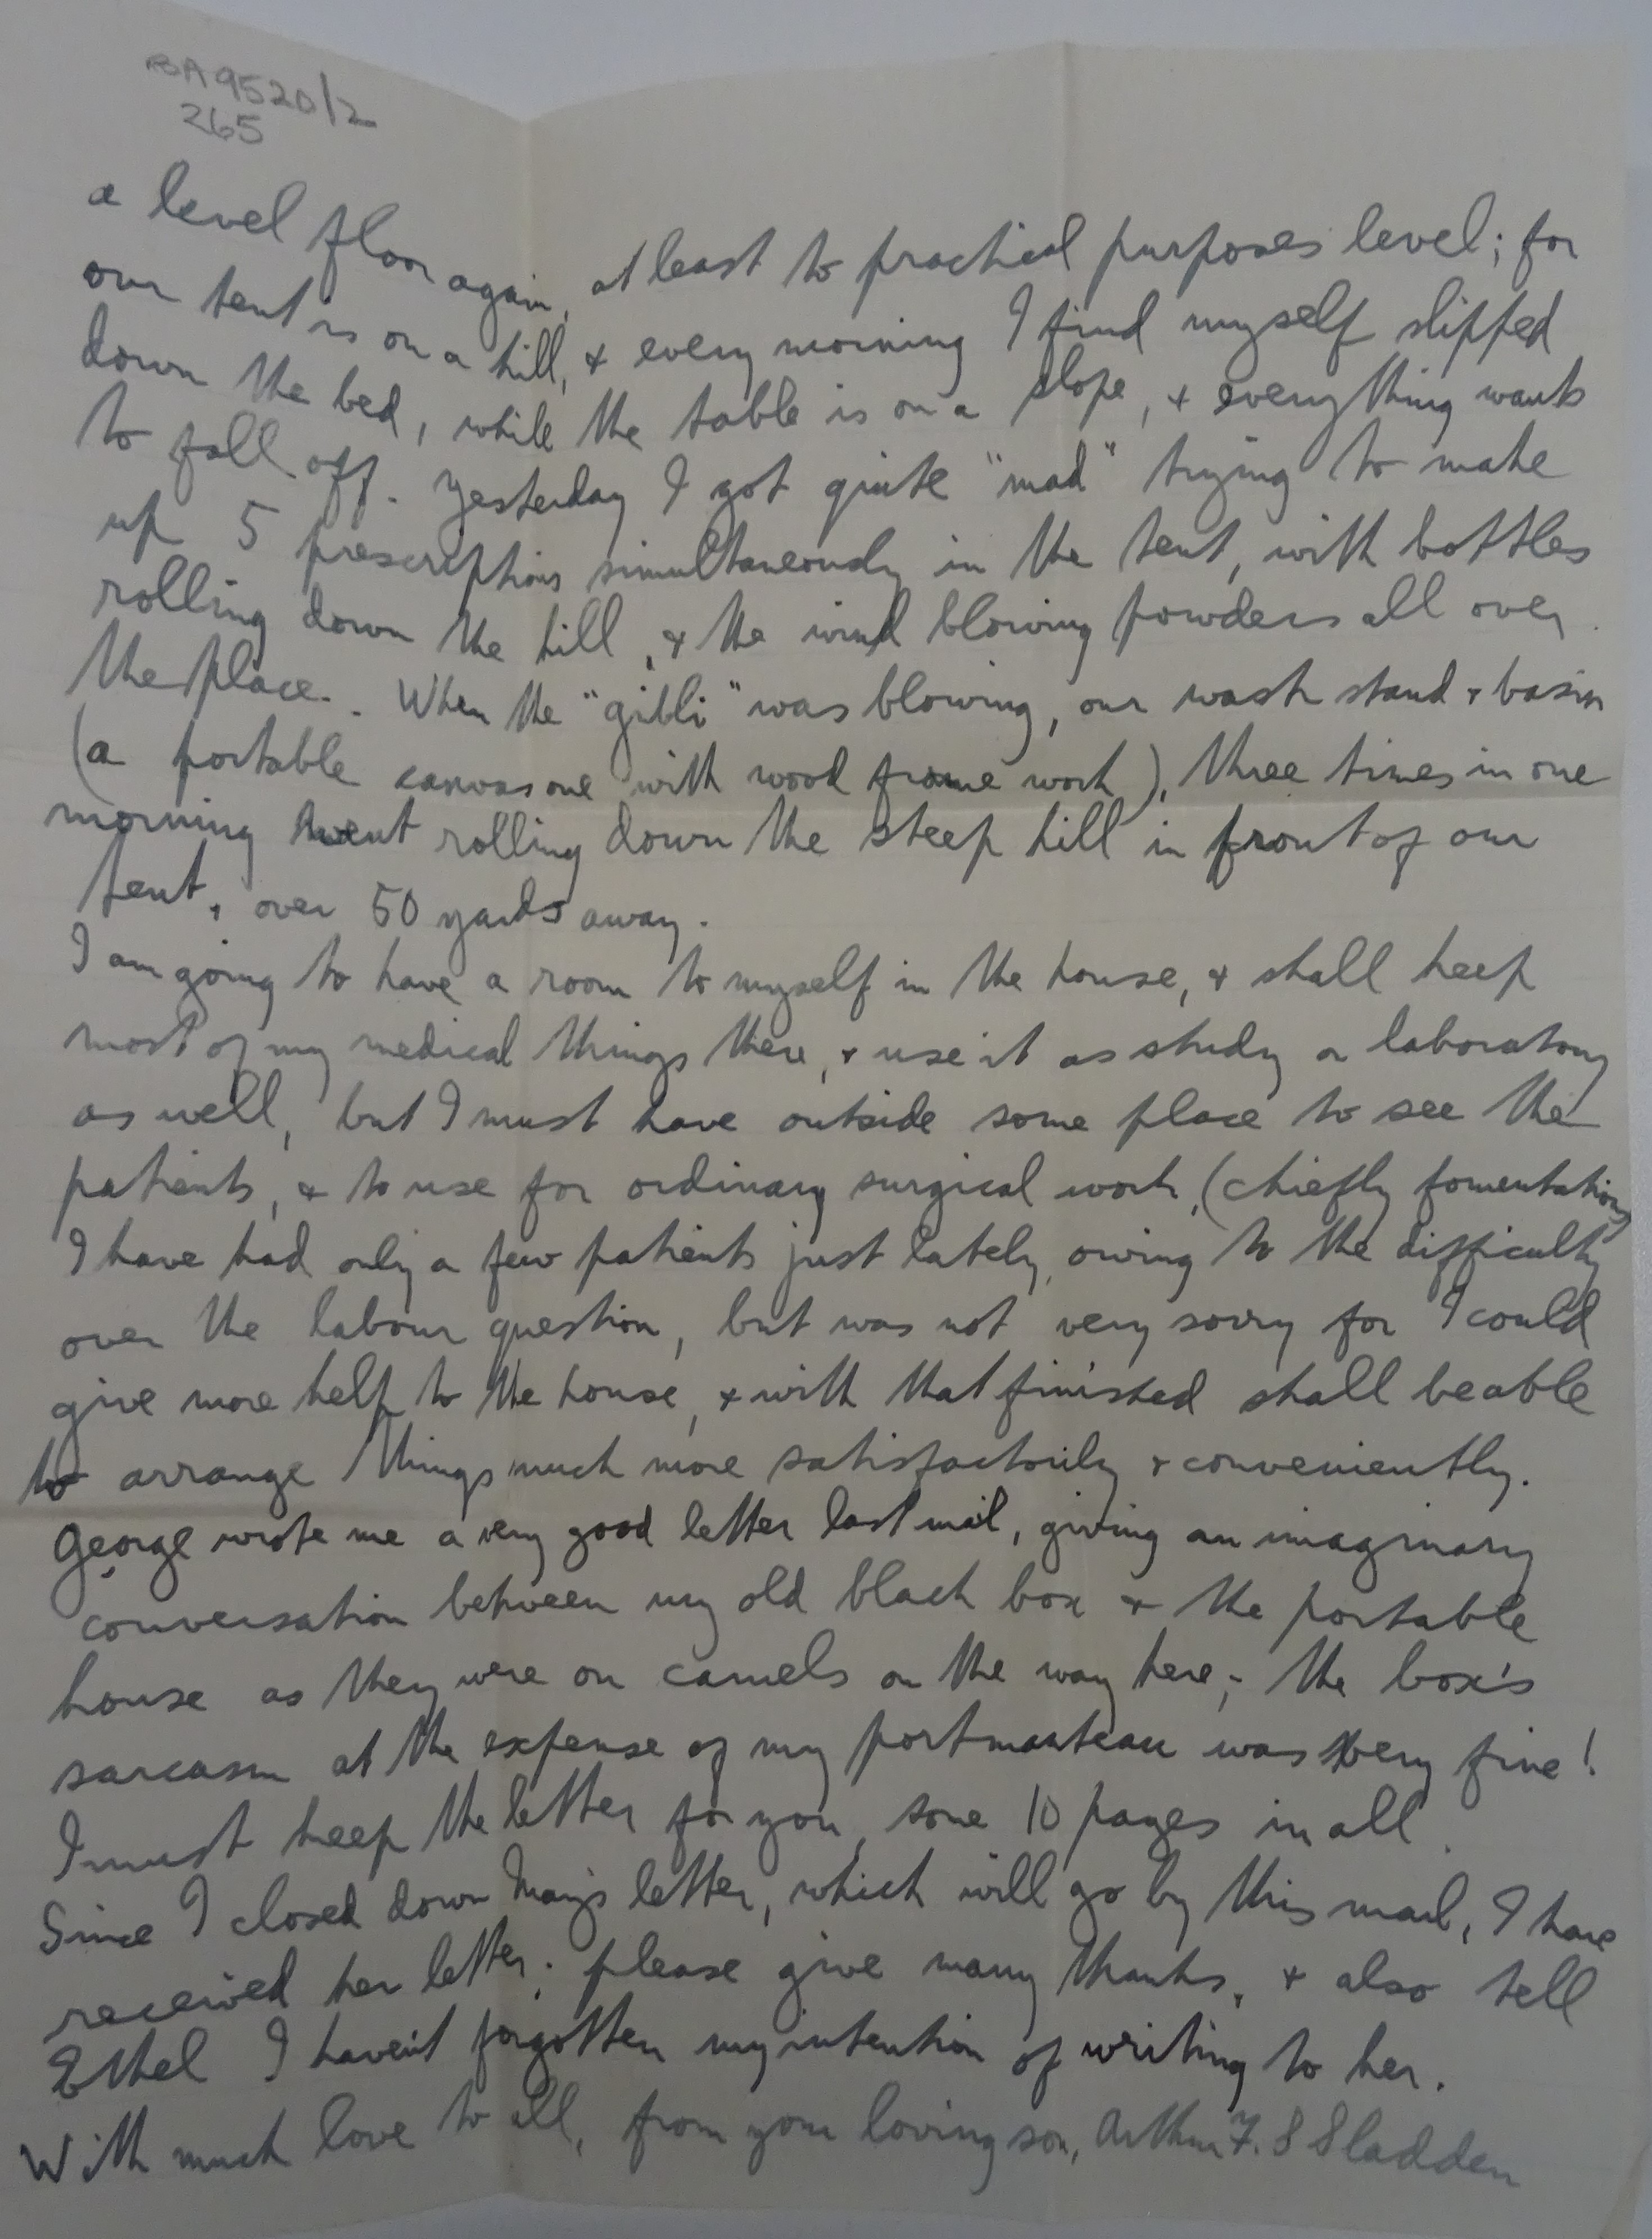 BA9520/2
265
a level floor again, at least to practical purposes level; for
our tent is on a hill, & every morning I find myself slipped
down the bed, while the table is on a slope, & everything wants
to fall off. Yesterday I got quite "mad" trying to make
up 5 prescriptions simultaneously in the tent, with bottles
rolling down the hill, & the wind blowing powders all over
the place. When the "gibli" was blowing, our wash stand & basin
(a portable canvas one with wood frame work), three times in one
morning went rolling down the steep hill in front of our
tent, over 50 yards away.
I am going to have a room to myself in the house, & shall keep
most of my medical things there, & use it as study or laboratory
as well, but I must have outside some place to see the
patients, & to use for ordinary surgical work, (chiefly fomentations)
I have had only a few patients just lately, owing to the difficulty
over the labour question, but was not very sorry for I could
give more help to the house, & with that finished shall be able
to arrange things much more satisfactorily & conveniently.
George wrote me a very good letter last mail, giving an imaginary
conversation between my old black box & the portable
house as they were on camels on the way here; the box's
sarcasm at the expense of my portmanteau was very fine!
I must keep the letter for you, some 10 pages in all.
Since I closed down May's letter, which will go by this mail, I have
received her letter; please give many thanks, & also tell
Ethel I haven't forgotten my intention of writing to her.
With much love to all, from your loving son, Arthur F. S Sladden